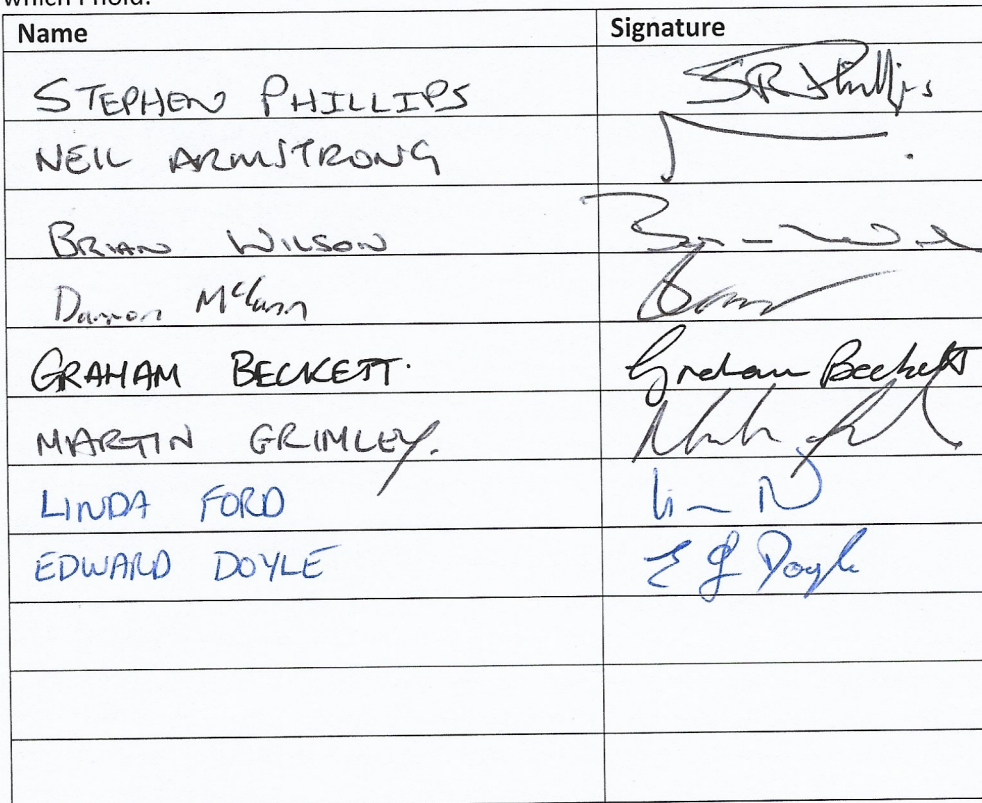 which I hold.
Name Signature
STEPHEN PHILLIPS SR Phillips
NEIL ARMSTRONG
BRIAN WILSON
Damon McCann
GRAHAM BECKETT. Graham Beckett
MARTIN GRIMLEY.
LINDA FORD
EDWARD DOYLE E J Doyle